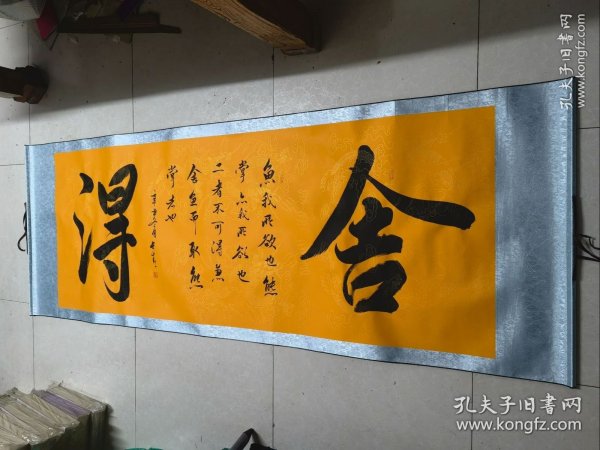 舍
魚我所欲也熊
掌亦我所欲也
二者不可得兼
舍魚而取熊
掌者也
得
孔夫子旧书网
www.kongfz.com
孔夫子旧书网
www.kongfz.com